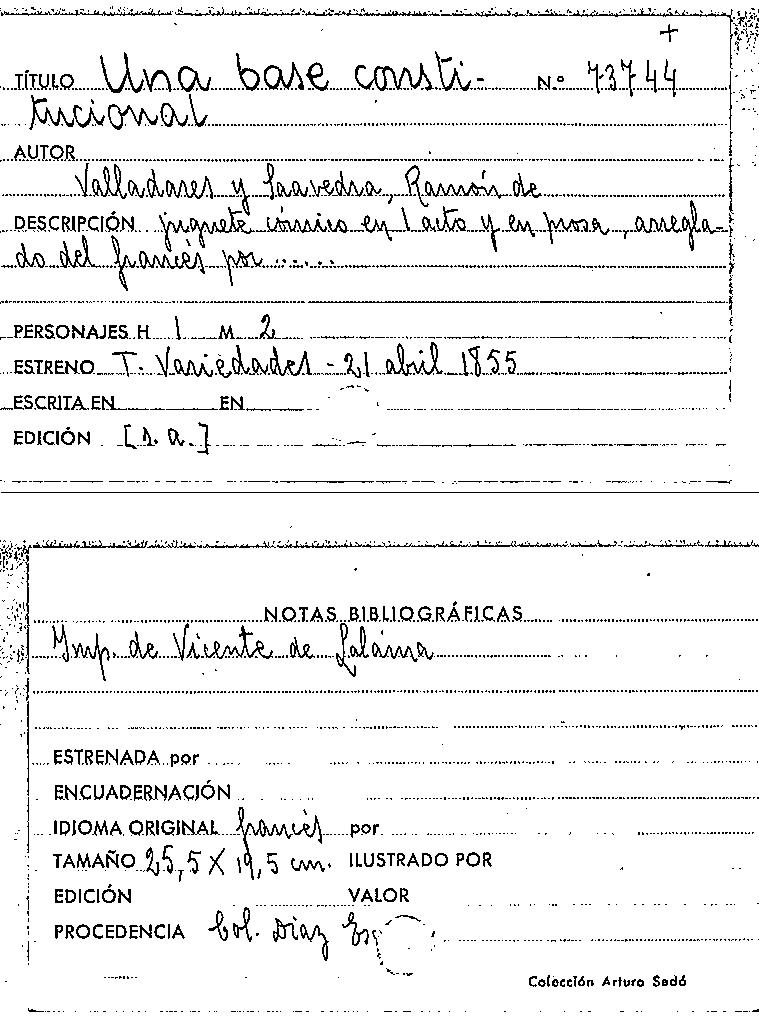 +
TÍTULO Una base consti- N.º 73744
tucional
AUTOR
Valladares y Saavedra, Ramón de
DESCRIPCIÓN juguete cómico en 1 acto y en prosa, arregla-
do del francés por ......
PERSONAJES H 1 M 2
ESTRENO T. Variedades - 21 abril 1855
ESCRITA EN EN
EDICIÓN [s. a.]
NOTAS BIBLIOGRÁFICAS
Imp. de Vicente de Lalama
ESTRENADA por
ENCUADERNACIÓN
IDIOMA ORIGINAL francés por
TAMAÑO 25,5 X 19,5 cm. ILUSTRADO POR
EDICIÓN VALOR
PROCEDENCIA Col. Díaz
Colección Arturo Sedó